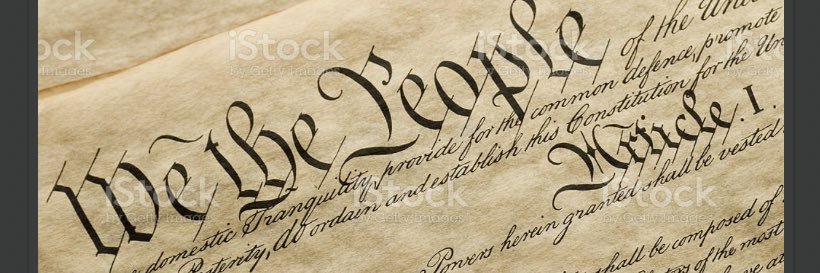 We the People of the Unit
domestic Tranquility, provide for the common defence, promote
Posterity, do ordain and establish this Constitution for the Un
Article. I.
Powers herein granted shall be vested
shall be composed of
of the most
iStock
by Getty Images
iStock
by Getty Images
iStock
by Getty Images
iStock
by Getty Images
iStock
by Getty Images
iStock
by Getty Images
iStock
by Getty Images